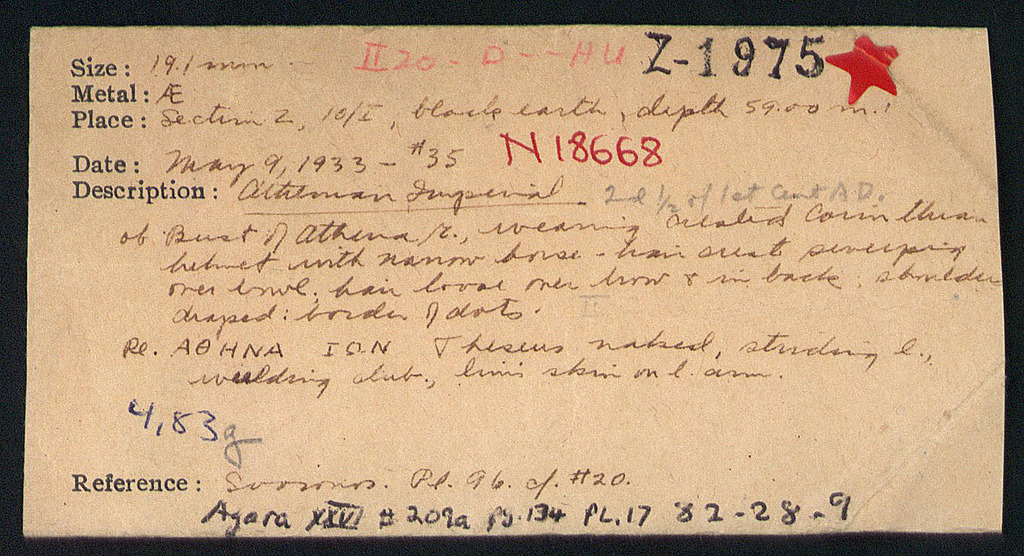 II20 - D - - HU Z-1975
Size: 19.1 mm
Metal: Æ
Place: Section Z, 10/I, black earth, depth 59.00 m.
Date: May 9, 1933 - #35 N18668
Description: Athenian Imperial 2d 1/2 of 1st Cent A.D.
ob Bust of Athena r., wearing crested Corinthian
helmet with narrow horse-hair crest sweeping
over bowl; hair loose over brow & in back; shoulder
draped: border of dots.
II
Re. ΑΘΗΝΑ ΙΩΝ Theseus naked, striding l.,
wielding club, lion's skin on l. arm.
4,83 g
Reference: Svoronos. Pl. 96. cf. #20.
Agora #209a pg. 134 PL.17 82-28-9